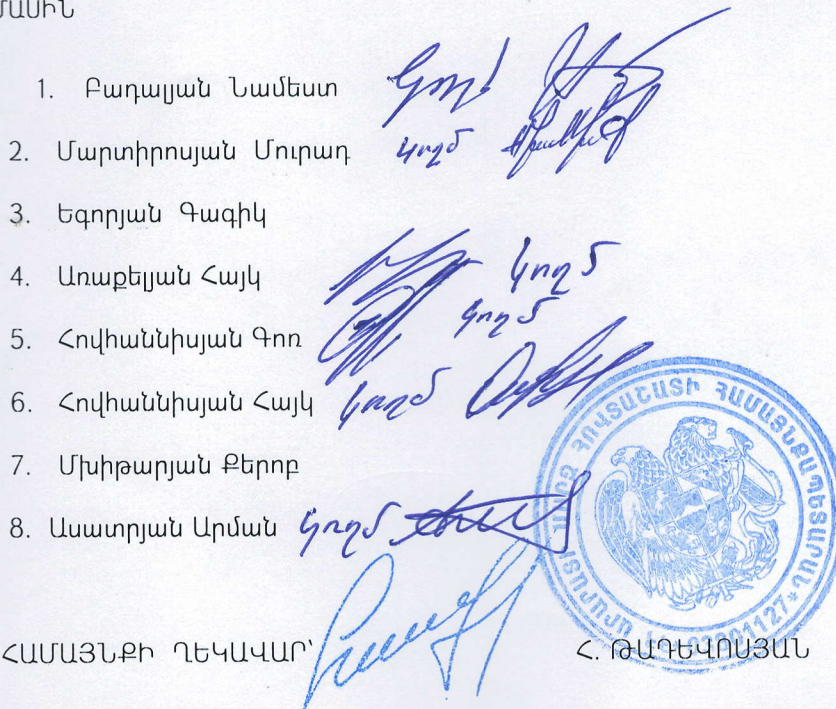 ՄԱՍԻՆ
1. Բադալյան Նամեստ կողմ
2. Մարտիրոսյան Մուրադ կողմ
3. Եգորյան Գագիկ
4. Առաքելյան Հայկ կողմ
5. Հովհաննիսյան Գոռ կողմ
6. Հովհաննիսյան Հայկ կողմ
7. Մխիթարյան Քերոբ
8. Ասատրյան Արման կողմ
ՀՈՎՏԱՇԱՏԻ ՀԱՄԱՅՆՔԱՊԵՏԱՐԱՆ
ՀԱՄԱՅՆՔԻ ՂԵԿԱՎԱՐ՝ Հ. ԹԱԴԵՎՈՍՅԱՆ